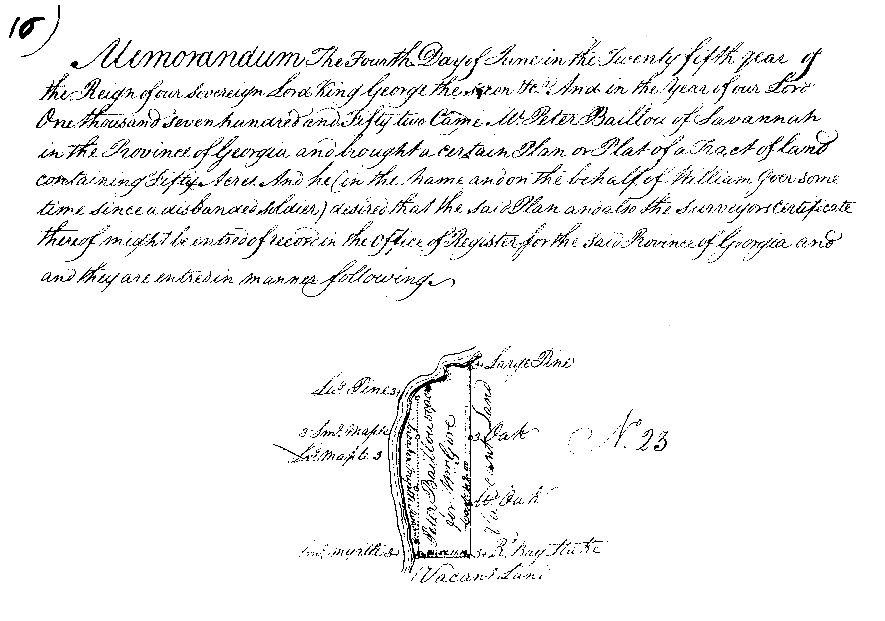 16)
Memorandum The Fourth Day of June in the Twenty fifth year of
the Reign of our Sovereign Lord King George the &c. And in the Year of our Lord
One thousand seven hundred and Fifty two Came Mr. Peter Baillou of Savannah
in the Province of Georgia and brought a certain Plan or Plat of a Tract of land
containing Fifty Acres And he (in the Name and on the behalf of William Goer some
time since a disbanded Soldier) desired that the said Plan and also the Surveyors Certificate
thereof might be entred of record in the Office of Register for the said Province of Georgia and
and they are entred in manner following
Large Pine
Pine 3
3 Sml. Maple
Maple 3
3 Oak
No. 23
Peter Baillou
for
Vacant Land
Oak
myrtle 3
3 Rd. Bay Stake
Vacant Land